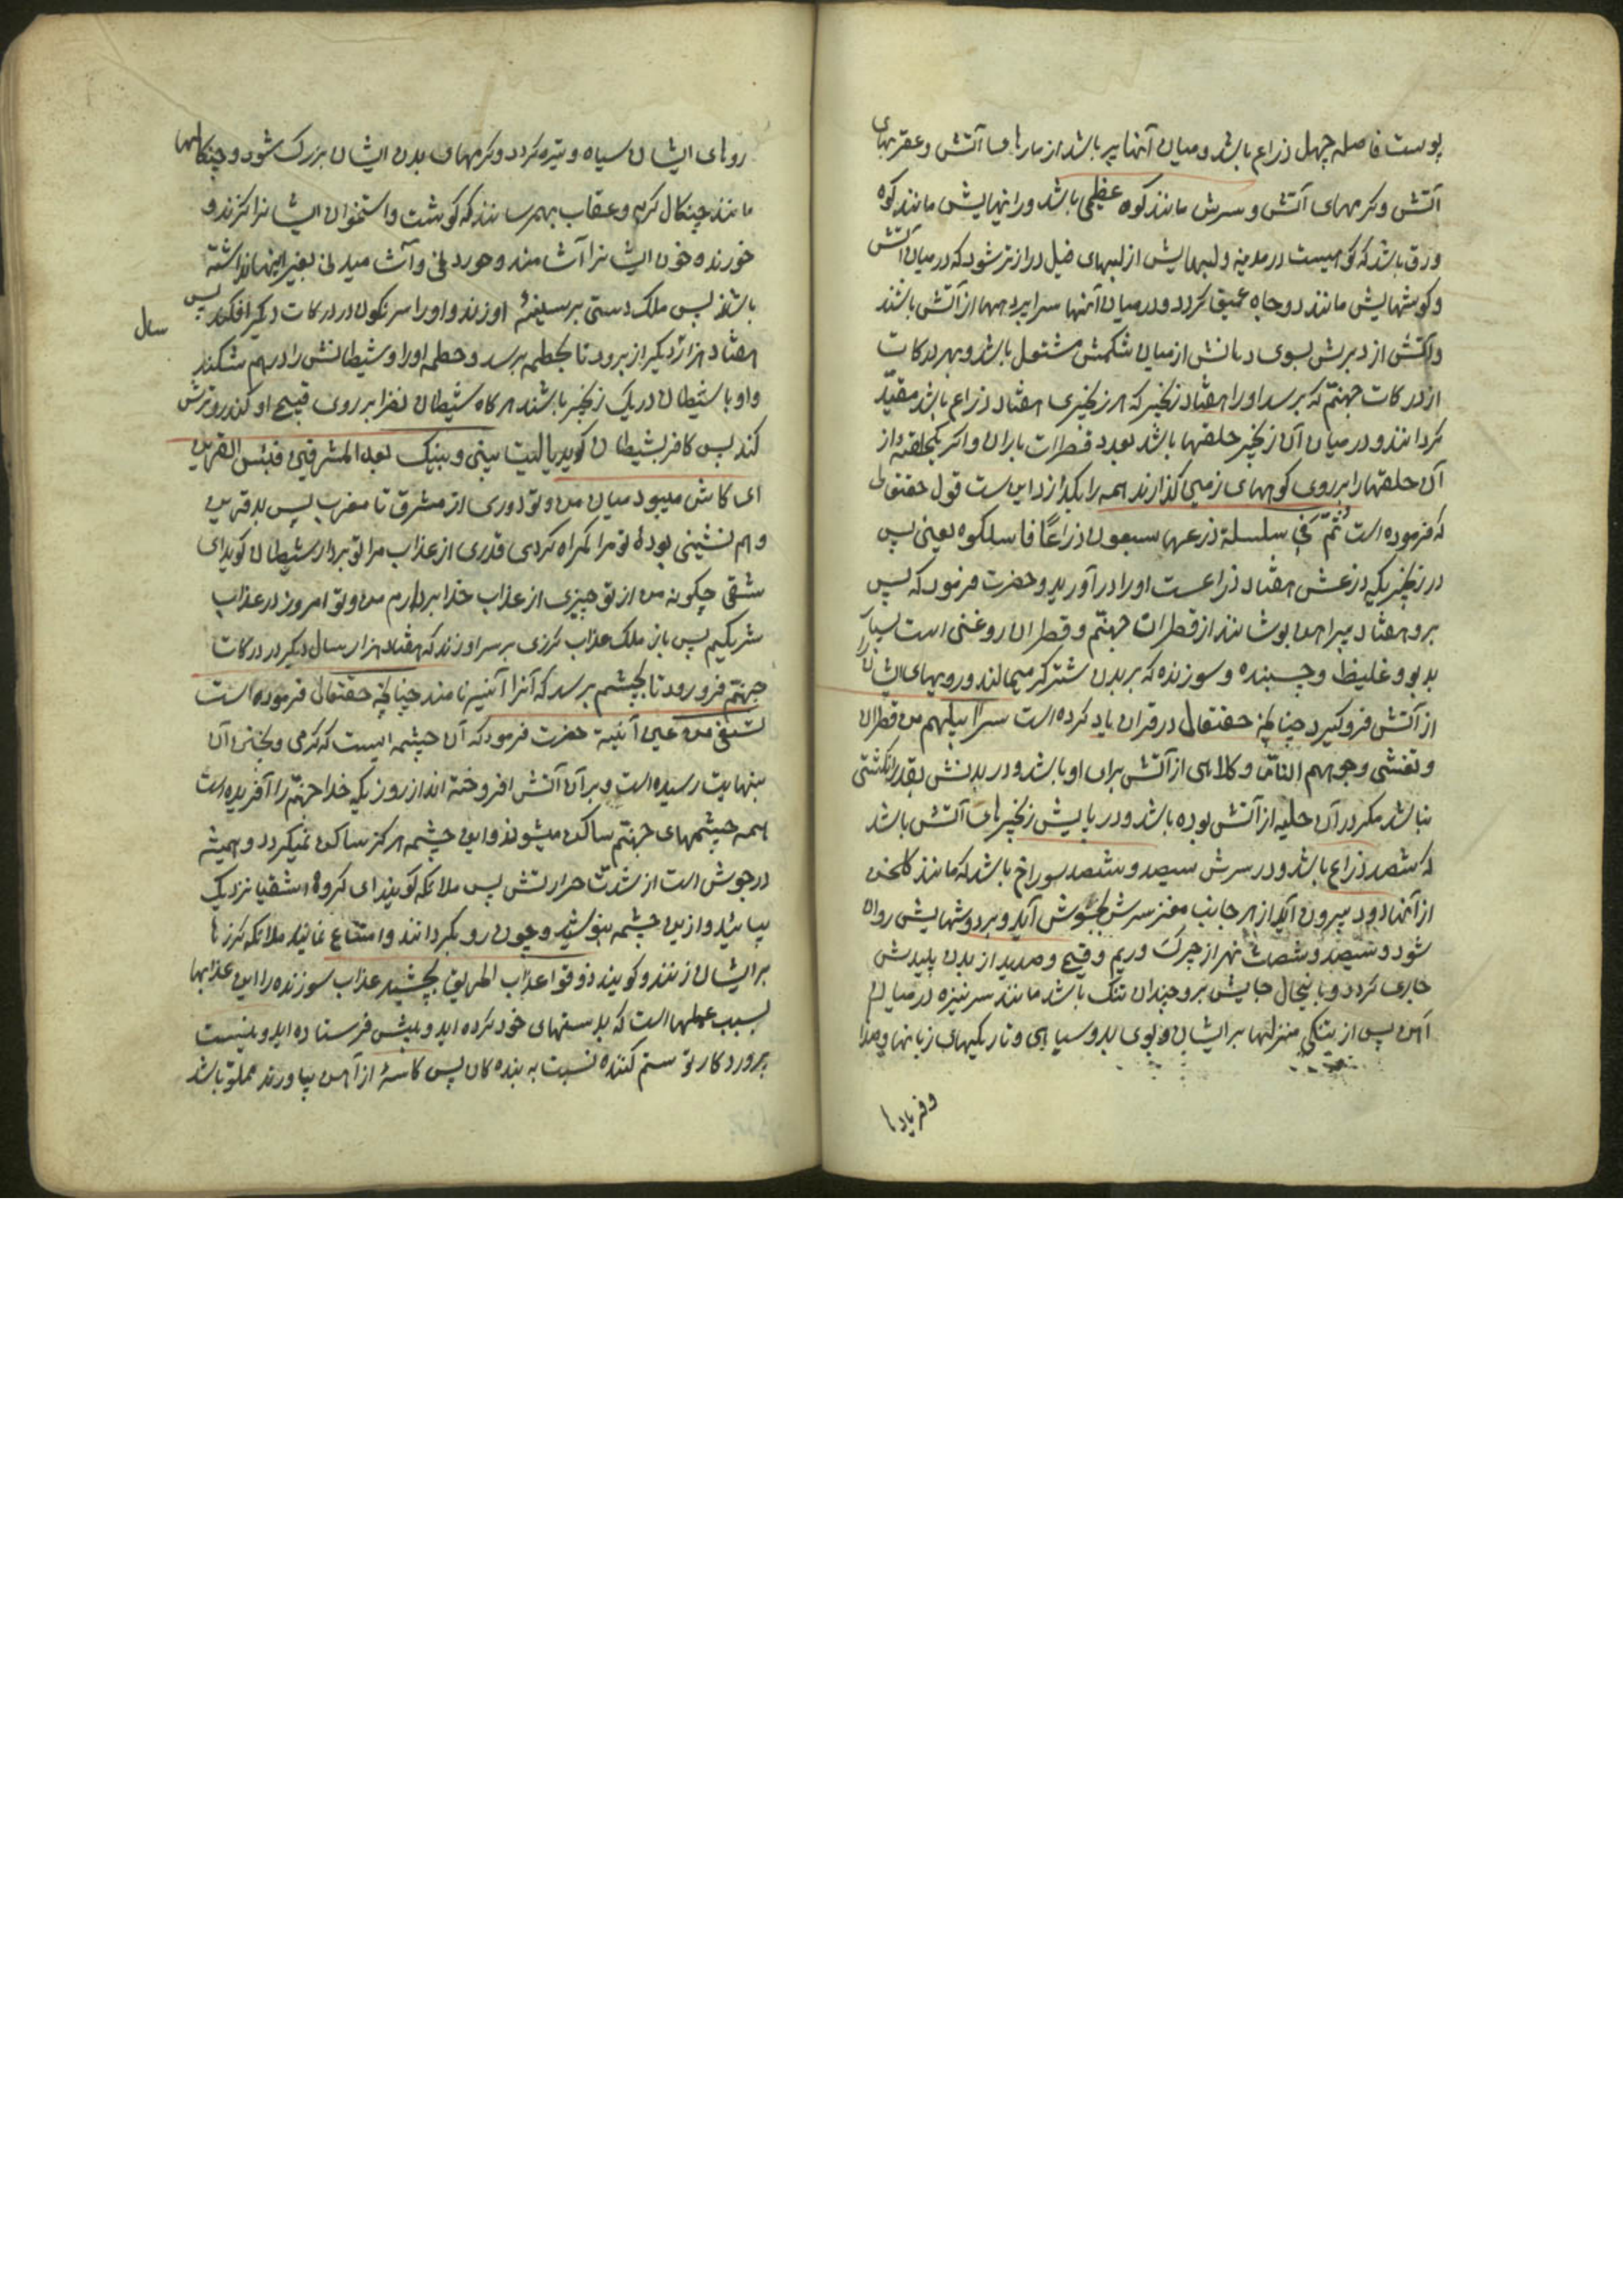 پوست فاصله چهل ذراع باشد و میان آنها پر باشد از مارهای آتش و عقربهای
آتش و کرمهای آتش و سرش مانند کوه عظیمی باشد و رانهایش مانند کوه
ورق باشد که کوهیست در مدینه و لبهایش از لبهای فیل درازتر شود که در میان آتش
و کوشهایش مانند دو چاه عمیق کردد و در میان آنها سراپرد‌هها از آتش باشند
و آتش از دبرش بسوی دهانش از میان شکمش مشتعل باشد و بهر درکات
از درکات جهنم که برسد او را هفتاد زنجیر که هر زنجیری هفتاد ذراع باشد مقید
کردانند و در میان آن زنجیر حلقها باشد بعدد قطرات باران و اکر یکحلقه از
آن حلقها را بر روی کوههای زمین کذارند همه را بکدازد این است قول حقتعالی
که فرموده است ثمّ فی سلسلة ذرعها سبعون ذراعًا فاسلکوه یعنی پس
در زنجیریکه ذرعش هفتاد ذراعست او را در آورید و حضرت فرمود که پس
برو هفتاد پیراهن بوشانند از قطرات جهنّم و قطران روغنی است بسیار
بدبو و غلیظ و چسبنده و سوزنده که بر بدن شتر کر میمالند و رویهای ایشان را
از آتش فرو کیرد چنانچه حقتعالی در قران یاد کرده است سرابیلهم من قطران
و تغشی وجوههم النار و کلاهی از آتش برای او باشد و در بدنش بقدر انکشتی
نباشد مکر در آن حلیه از آتش بوده باشد و در پایش زنجیرهای آتش باشد
که شصد ذراع باشد و در سرش سیصد و شصد سوراخ باشد که مانند کلخن
از آنها دود بیرون آید از هر جانب مغز سرش بجوش آید و بر دوشهایش روان
شود و سیصد و شصت نهر از چرک و ریم و قیح و صدید از بدن پلیدش
جاری کردد و با نیحال جایش برو چندان تنک باشد مانند سر نیزه در میان
آهن پس از تنکی منزلها بر ایشان و بوی بد و سیاهی و تاریکیهای زبانها و صدا
و فریادها
روهای ایشان سیاه و تیره کردد و کرمهای بدن ایشان بزرک شود و چنکالها
مانند چنکال کربه و عقاب بهم رسانند که کوشت و استخوان ایشانرا کزند و
خورند و خون ایشانرا آشامند و خوردنی و آشامیدنی بغیر اینها نداشته
باشند پس ملک دستی بر سینهٔ او زند و او را سرنکون در درکات دیکر افکند پس
هفتاد هزار دیکر از برود تا بحطمه برسد و حطمه او را و شیطانش را درهم شکند
سال
و او با شیطان در یک زنجیر باشند هر کاه شیطان نظرا بر روی قبیح او کند رو ترش
کند پس کافر بشیطان کوید یا لیت بینی و بینک بعد المشرقین فبئس القرین
ای کاش میبود میان من و تو دوری از مشرق تا مغرب پس بد قرین
و هم نشینی بودهٔ تو مرا کمراه کردی قدری از عذاب مرا تو بردار شیطان کوید ای
شقی چکونه من از تو چیزی از عذاب خدا بردارم من و تو امروز در عذاب
شریکیم پس باز ملک عذاب کرزی بر سر او زند که هفتاد هزار سال دیکر در درکات
جهنم فرو رود تا بچشم برسد که آنرا آنیه نامند چنانچه حقتعالی فرموده است
تسقی من عین آنیة حضرت فرمود که آن چشمه ایست که کرمی و پختن آن
بنهایت رسیده است و بر آن آتش افروخته اند از روزیکه خدا جهنم را آفریده است
همه چشمهای جهنم ساکن میشوند و این چشمه هرکز ساکن نمیکردد و همیشه
در جوش است از شدت حرارتش پس ملائکه کویند ای کروه اشقیا نزدیک
بیائید و ازین چشمه بنوشید و چون رو بکردانند و امتناع نمایند ملائکه کرزها
بر ایشان زنند و کویند ذوقوا عذاب الحریق بچشید عذاب سوزنده را این عذابها
بسبب عملها است که بدستهای خود کرده اید و پیش فرستاده اید و نیست
پروردکار تو ستم کننده نسبت به بنده کان پس کاسهٔ از آهن بیاورند مملو باشد